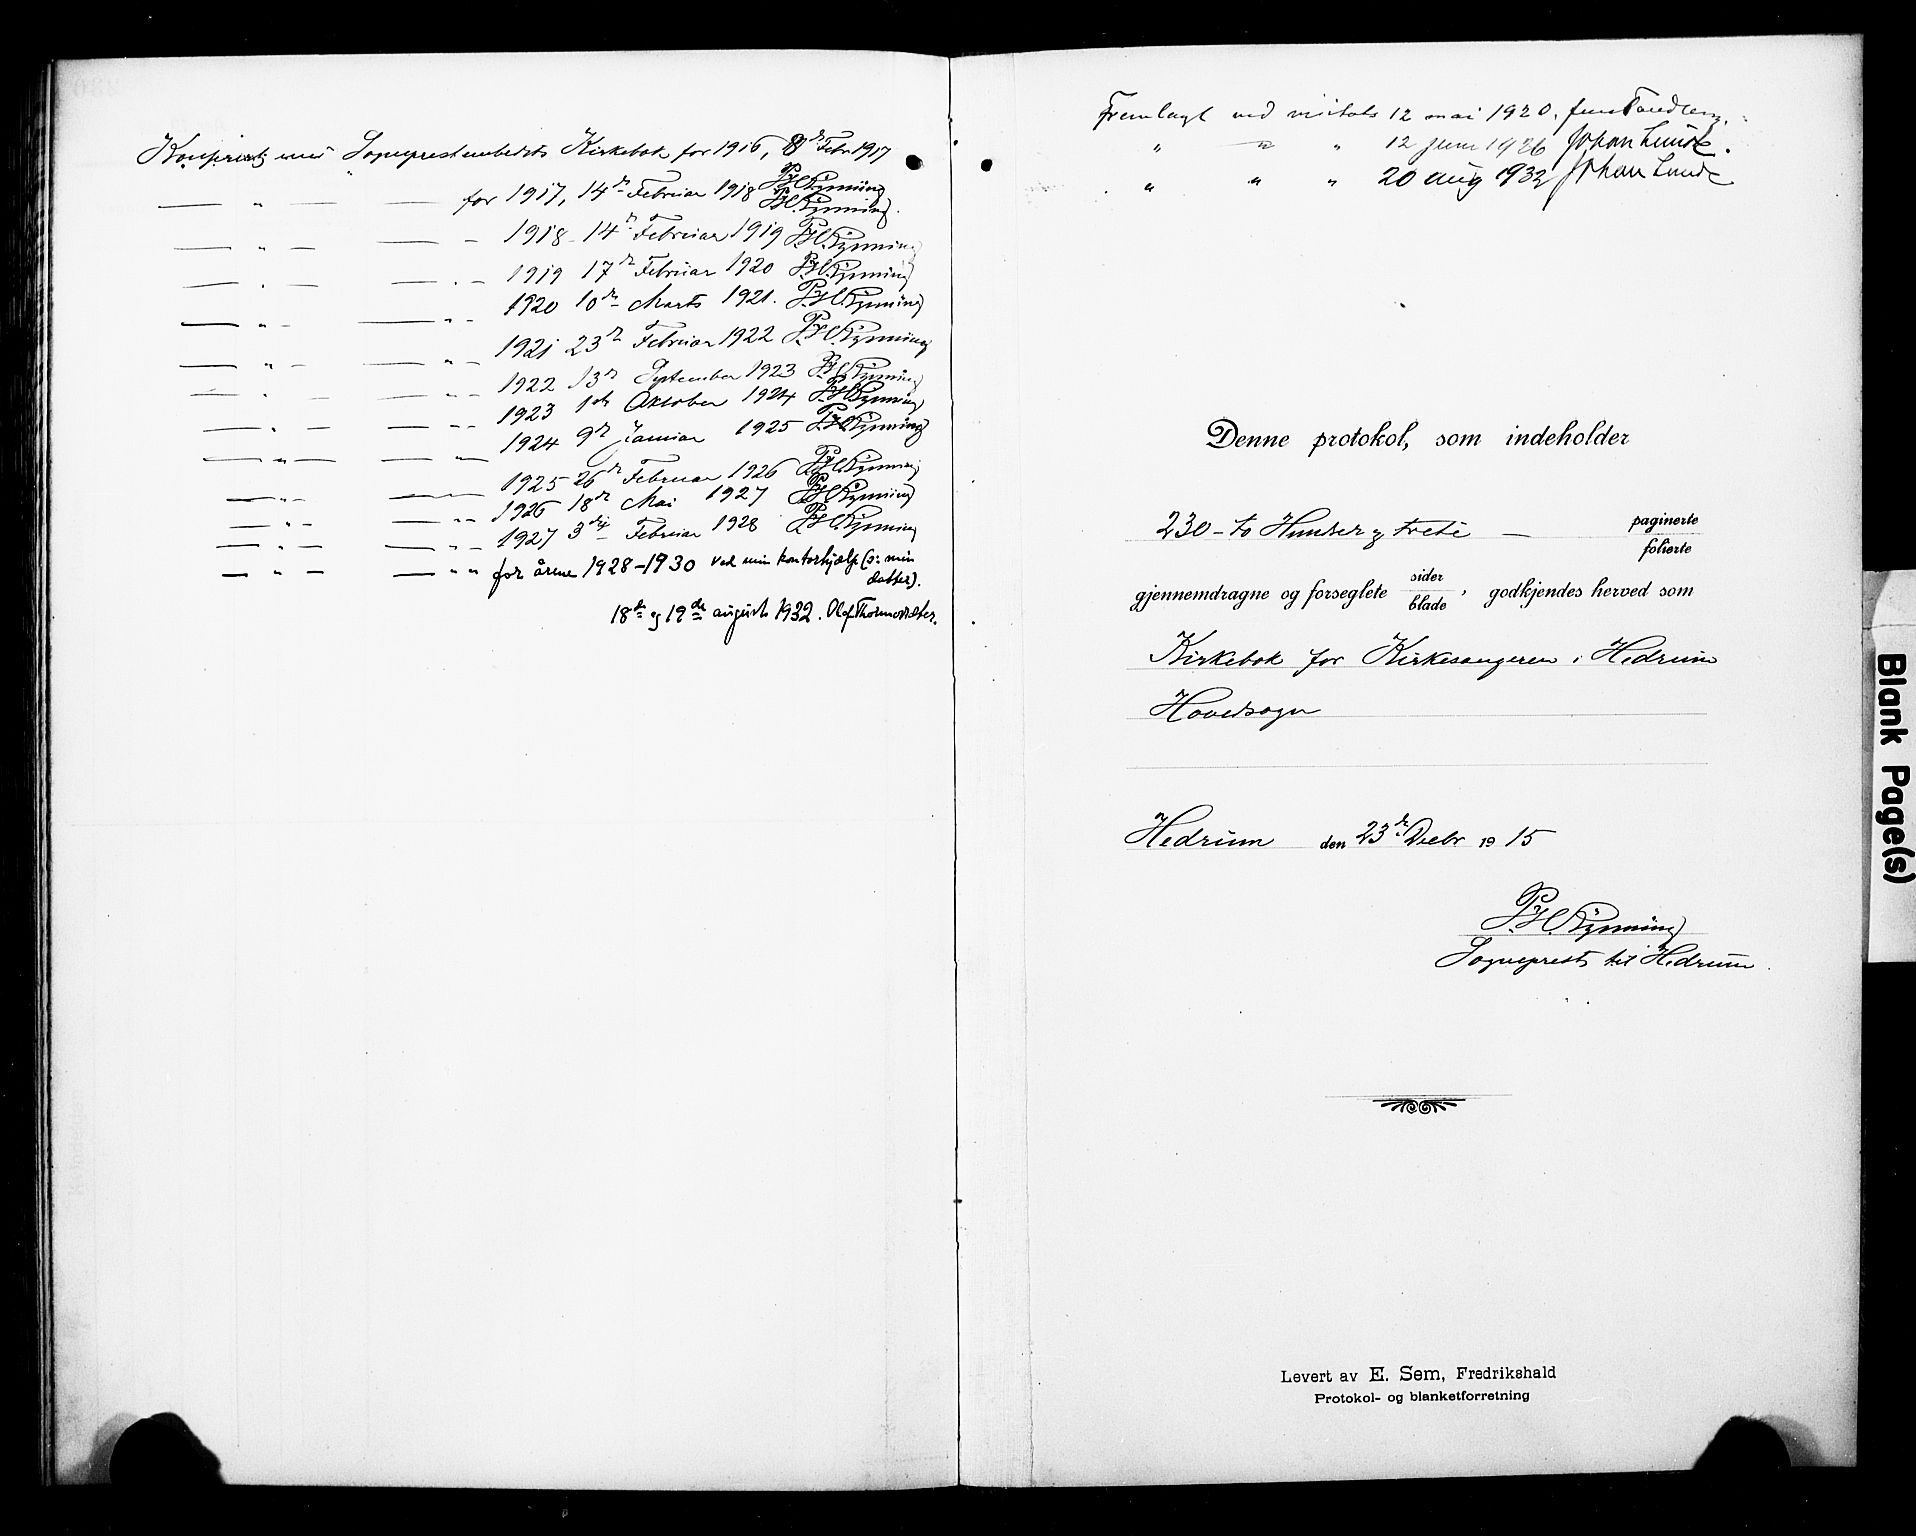 Konferert med Sogneprestembedets Kirkebok for 1916, 8de Febr 1917
P. H. Kynning
— " — — for 1917, 14de Februar 1918 P. H. Kynning.
— " — — - 1918 - 14de Februar 1919 P. H. Kynning
— " — — " - 1919 17de Februar 1920 P. H. Kynning
— " - — " - 1920 10de Marts 1921. P. H. Kynning
— " - — " - 1921 23de Februar 1922 P. H. Kynning
— " — — " - 1922 13de September 1923 P. H. Kynning
— " — — " - 1923 1ste Oktober 1924 P. H. Kynning
— " — — " - 1924 9de Januar 1925 P. H. Kynning
— " - — 1925 26de Februar 1926 P. H. Kynning
— " - — " - 1926 18de Mai 1927 P. H. Kynning
— " — — " - 1927 3die Februar 1928 P. H. Kynning
— " — — " " for årene 1928-1930 ved min kontorhjælp (ɔ: min
datter).
18de og 19de august 1932. Olaf Thormodsæter.
Fremlagt ved visitats 12 mai 1920. Jens Tandberg.
" " " 12 juni 1926 Johan Lunde.
" " " 20 aug 1932 Johan Lunde
Denne protokol, som indeholder
230 - to Hundre og treti — paginerte
folierte
gjennemdragne og forseglete sider
blade, godkjendes herved som
Kirkebok for Kirkesangeren i Hedrum
Hovedsogn
Hedrum den 23de Decbr 1915
P. H. Kynning
Sogneprest til Hedrum.
Levert av E. Sem, Fredrikshald
Protokol- og blanketforretning
Blank Page(s)